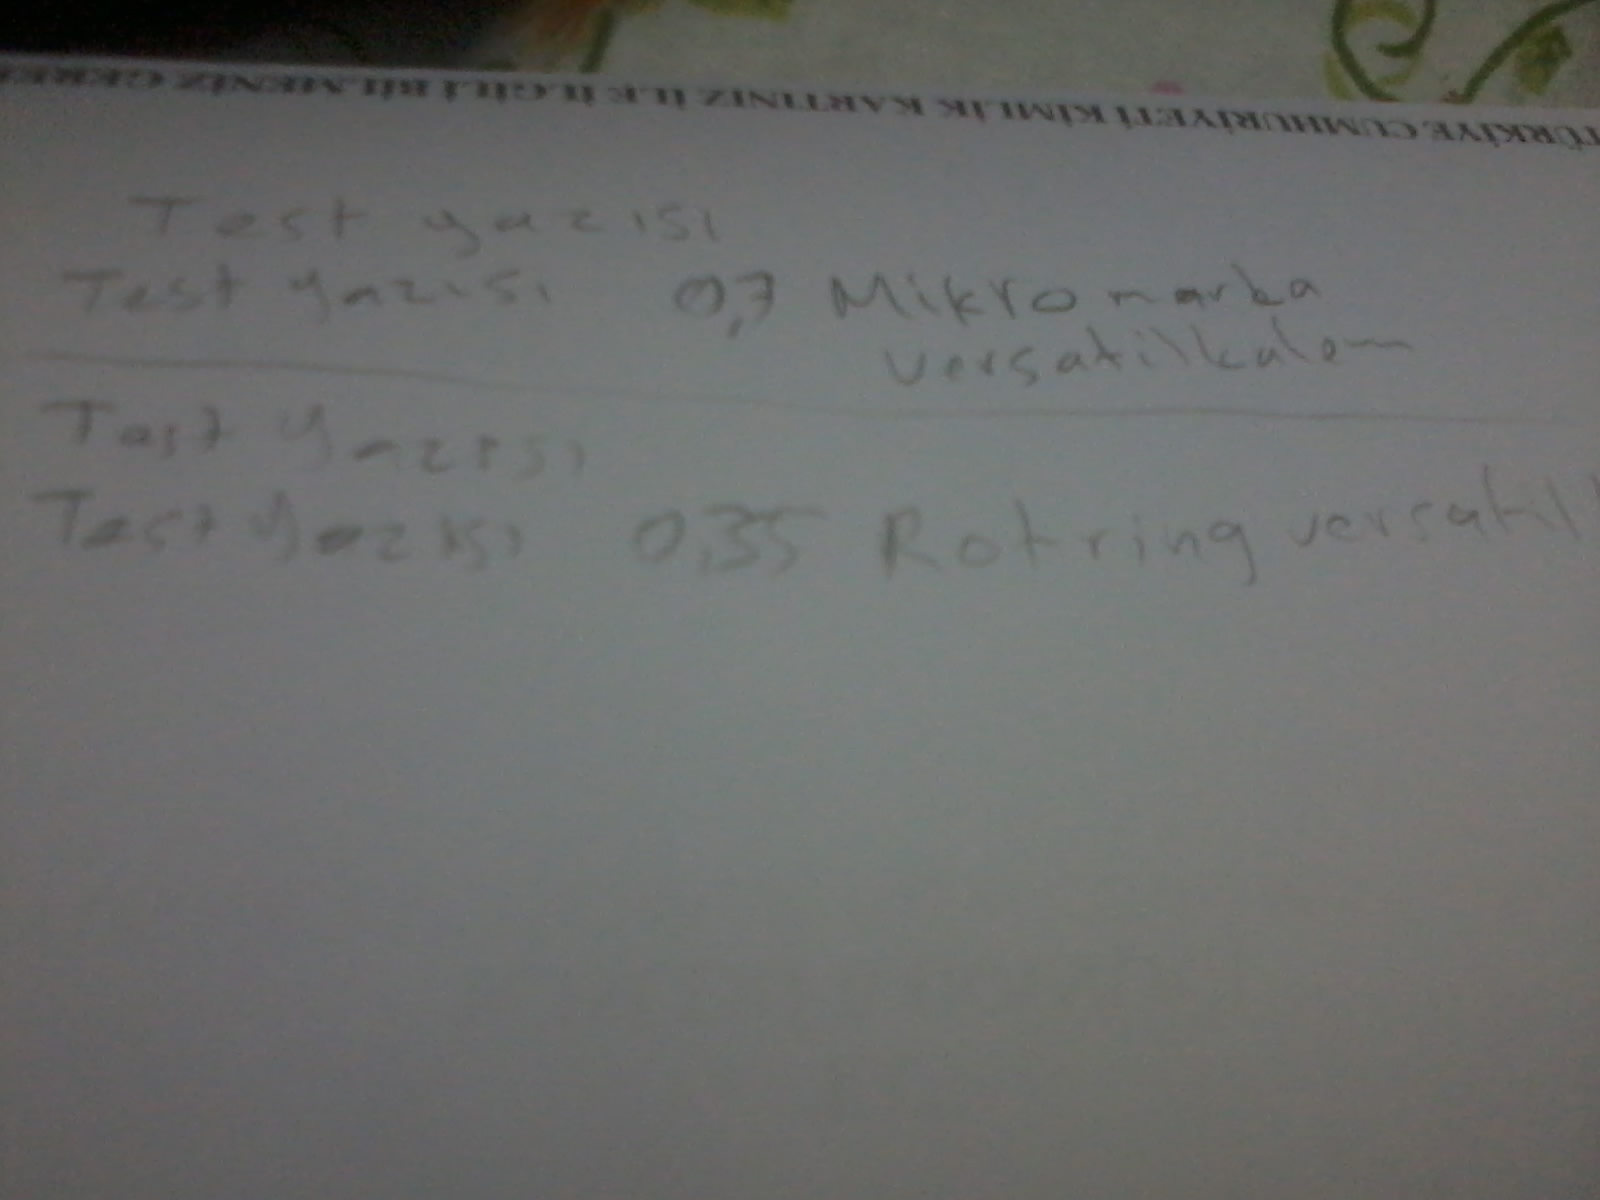 TÜRKİYE CUMHURİYETİ KİMLİK KARTINIZ İLE İLGİLİ BİLMENİZ GEREK
Test yazısı
Test yazısı 0,7 Mikro marka
versatilkalem
Test Yazısı
Test Yazısı 0,35 Rotring versatil